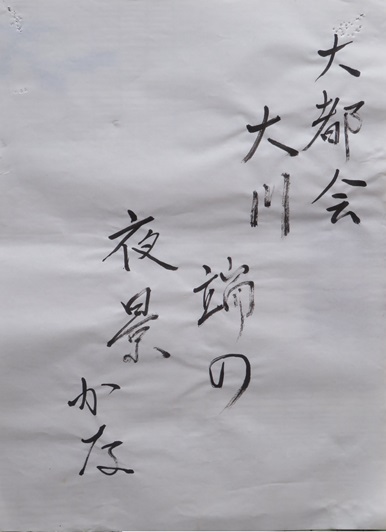 大都会
大川
端の
夜景
かな